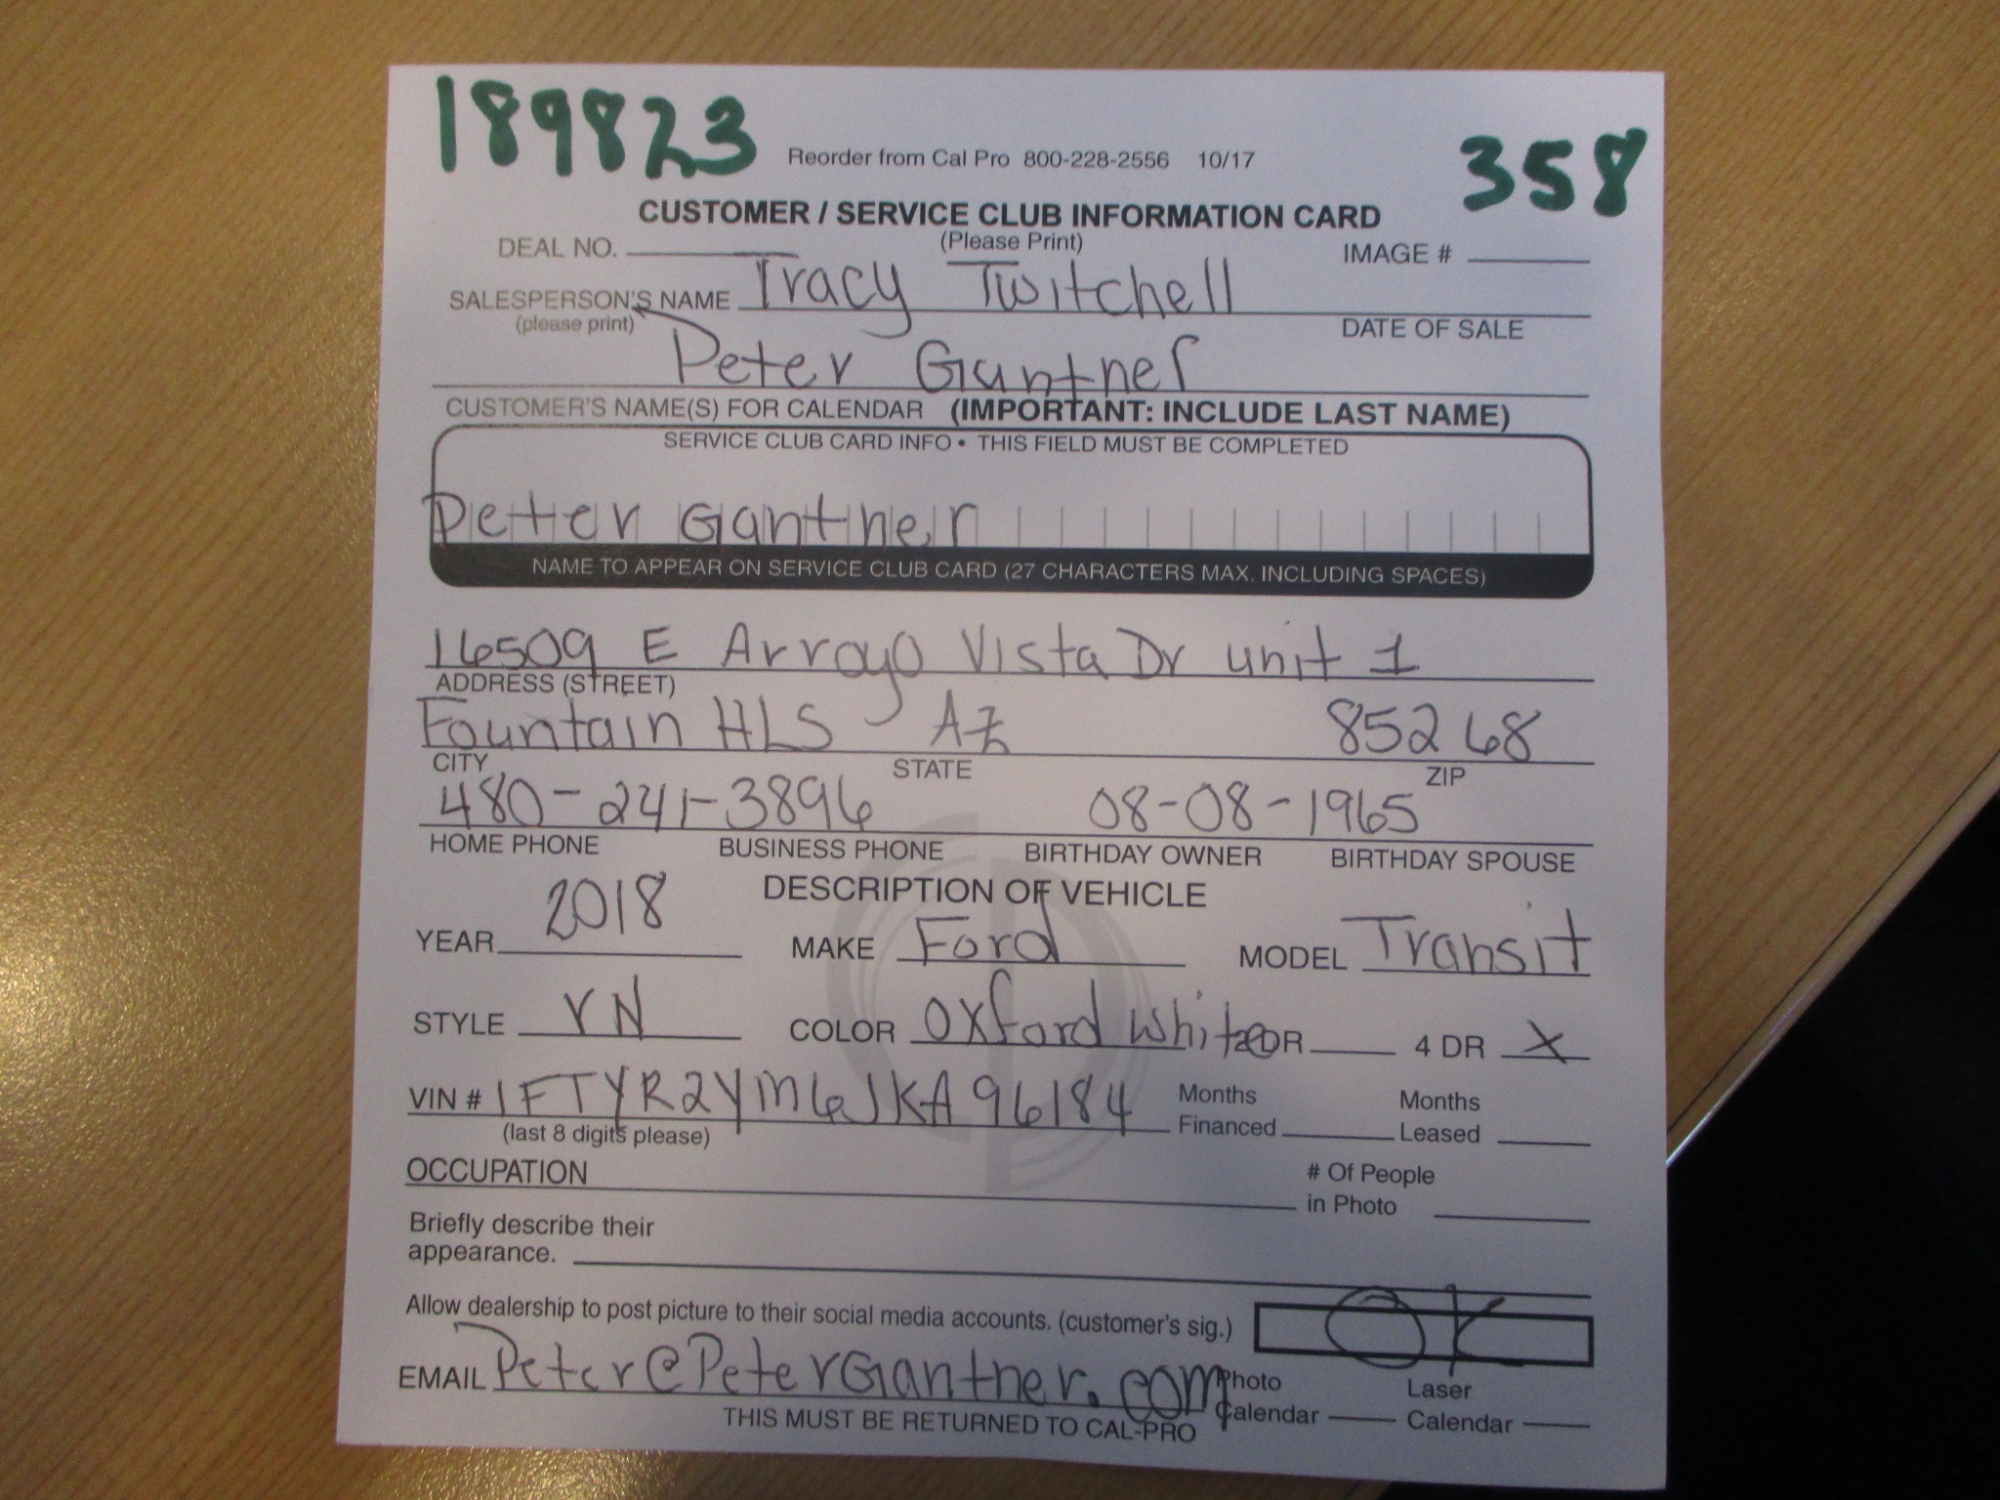 189823
Reorder from Cal Pro 800-228-2556 10/17
358
CUSTOMER / SERVICE CLUB INFORMATION CARD
(Please Print)
DEAL NO.
IMAGE #
SALESPERSON'S NAME Tracy Twitchell
(please print)
DATE OF SALE
Peter Gantner
CUSTOMER'S NAME(S) FOR CALENDAR (IMPORTANT: INCLUDE LAST NAME)
SERVICE CLUB CARD INFO • THIS FIELD MUST BE COMPLETED
Peter Gantner
NAME TO APPEAR ON SERVICE CLUB CARD (27 CHARACTERS MAX. INCLUDING SPACES)
16509 E Arroyo Vista Dr unit 1
ADDRESS (STREET)
Fountain HLS AZ 85268
CITY STATE ZIP
480-241-3896 08-08-1965
HOME PHONE BUSINESS PHONE BIRTHDAY OWNER BIRTHDAY SPOUSE
DESCRIPTION OF VEHICLE
YEAR 2018 MAKE Ford MODEL Transit
STYLE VN COLOR Oxford white 2 DR 4 DR X
VIN # 1FTYR2YM6JKA96184 Months Financed Months Leased
(last 8 digits please)
OCCUPATION # Of People in Photo
Briefly describe their
appearance.
Allow dealership to post picture to their social media accounts. (customer's sig.) OK
EMAIL Peter@PeterGantner.com Photo Calendar Laser Calendar
THIS MUST BE RETURNED TO CAL-PRO